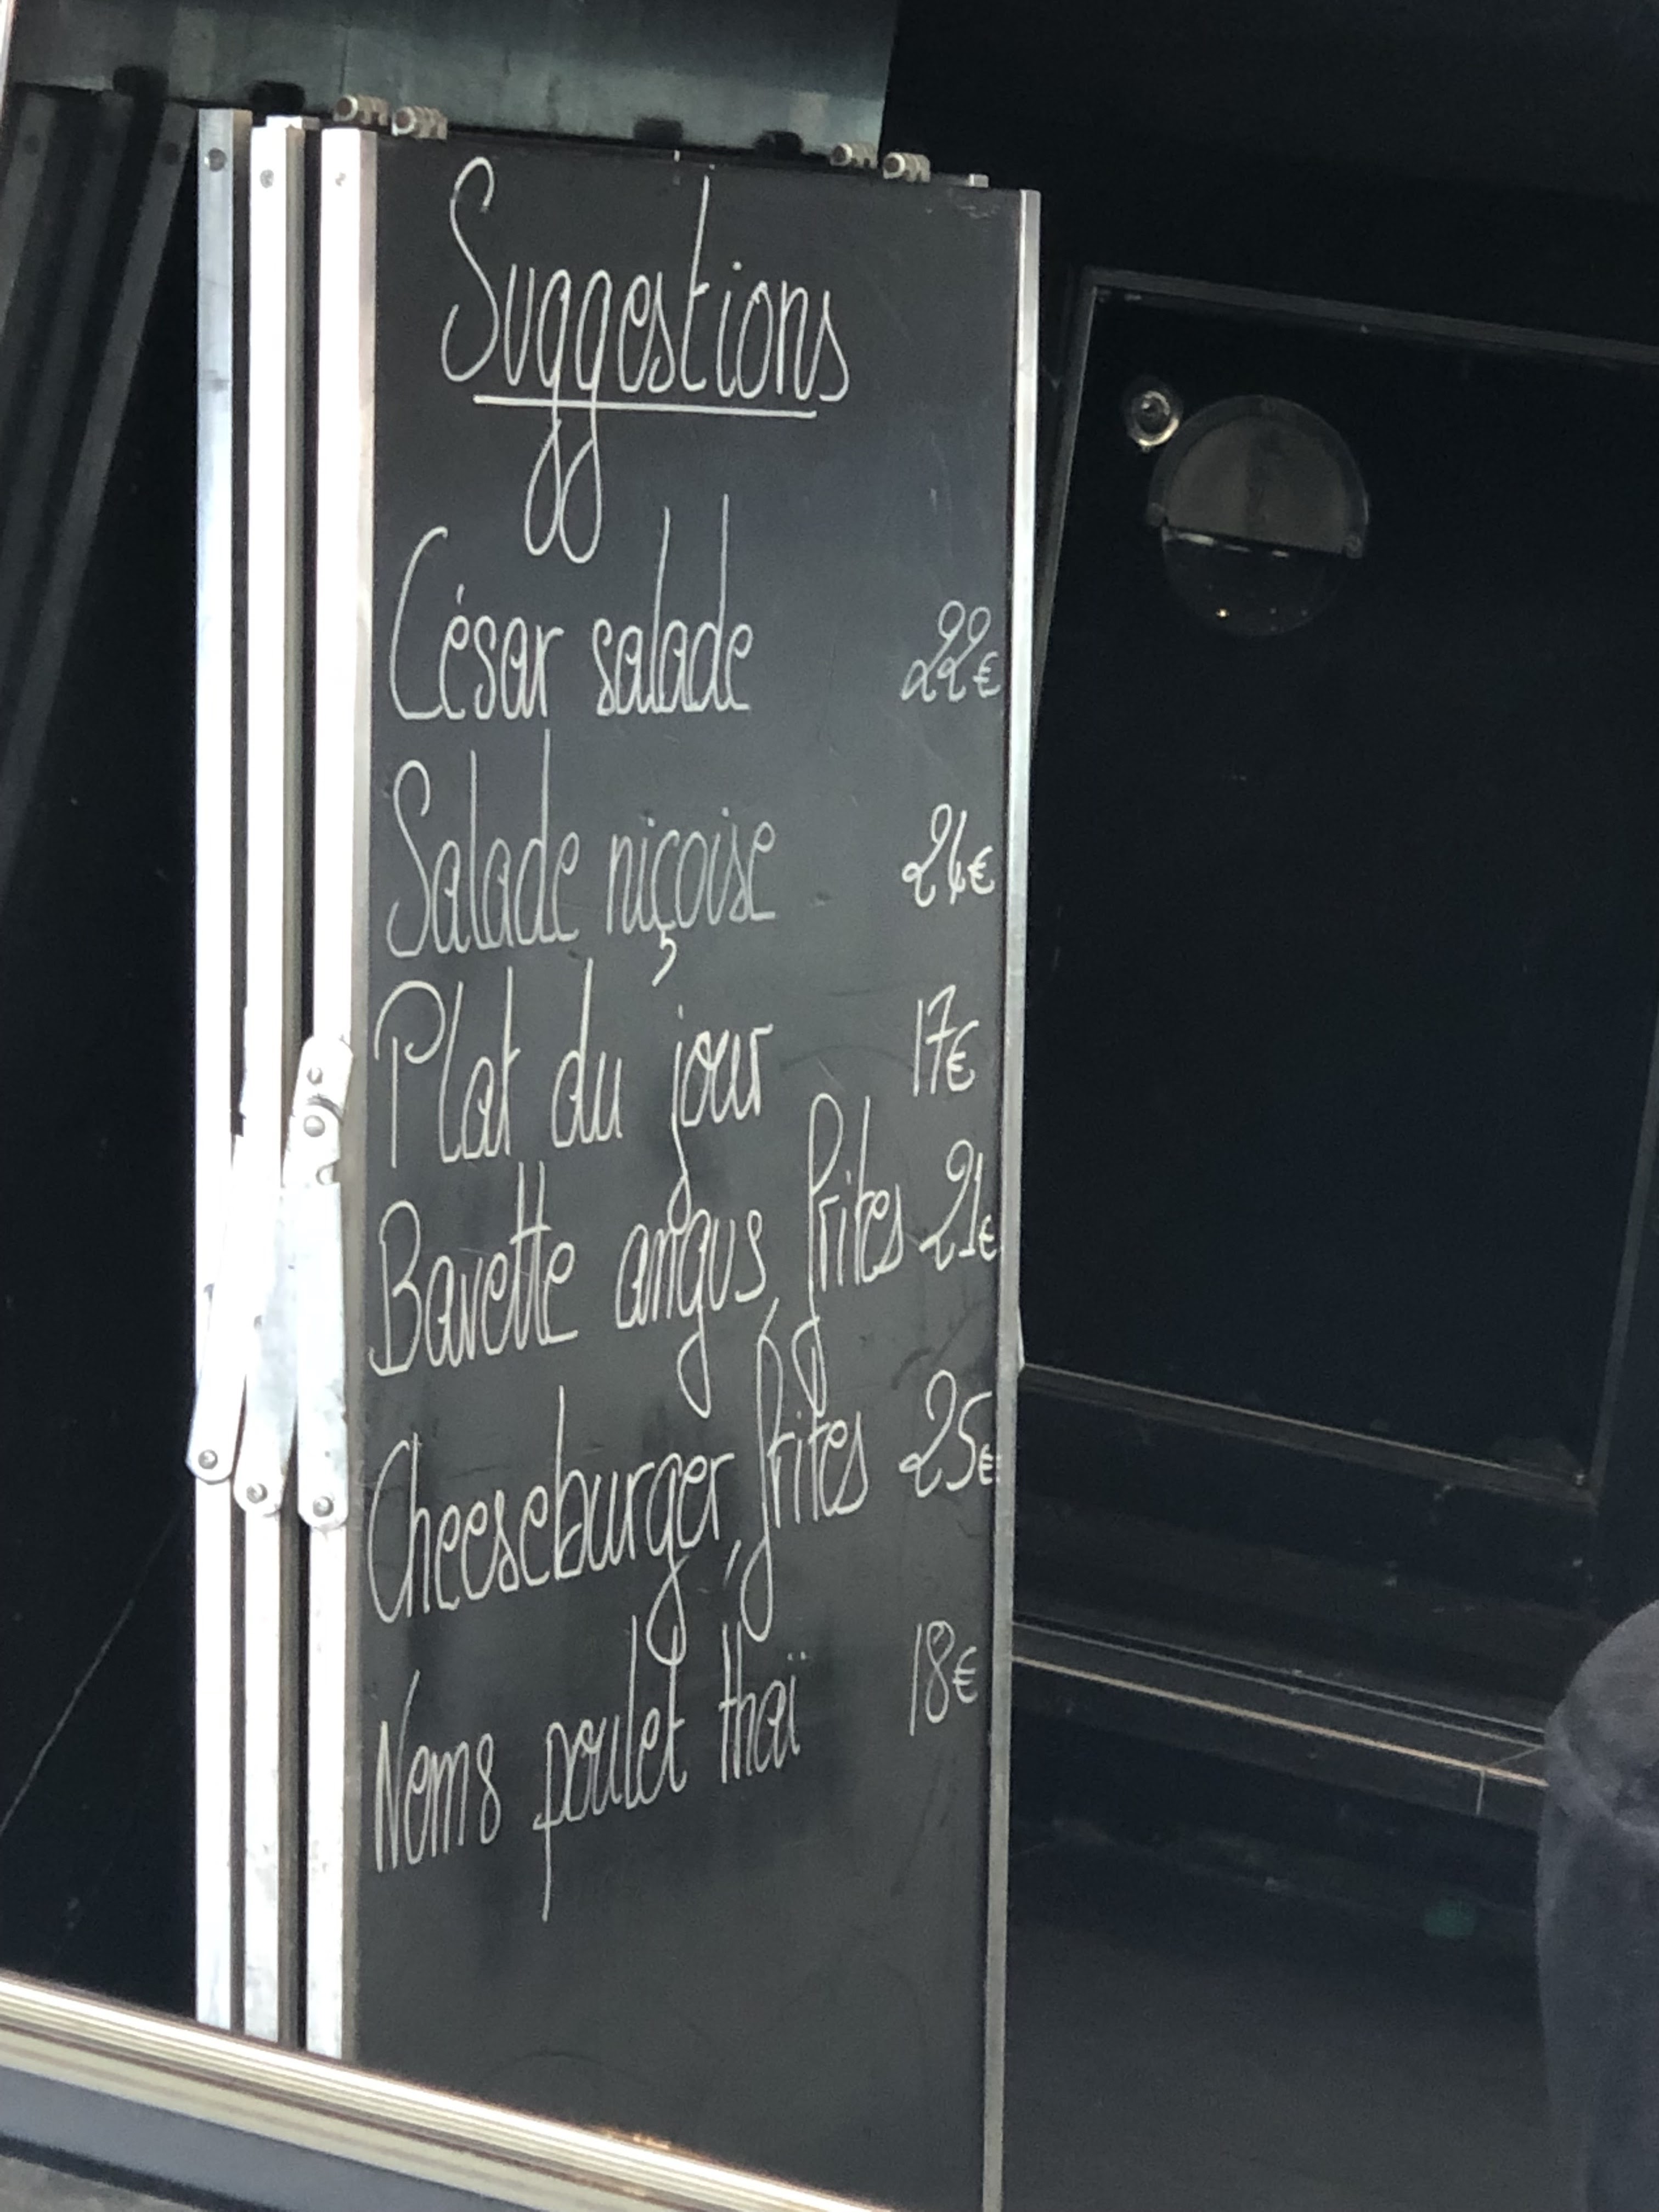 Suggestions
César salade 22€
Salade niçoise 24€
Plat du jour 17€
Bavette angus, frites 21€
Cheeseburger, frites 25€
Nems poulet thaï 18€